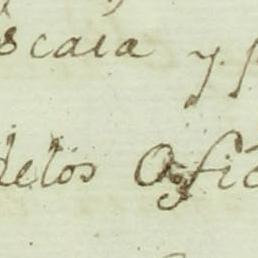 scara y
delos Ofic